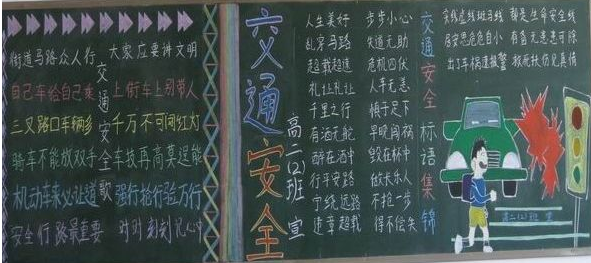 街道马路众人行 大家应要讲文明
自己车给自己乘 上街车上别带人
三叉路口车辆多 千万不可闯红灯
骑车不能放双手 车技再高莫逞能
机动车来必让道 强行抢行险万分
安全行路最重要 时时刻刻记心中
交通安全歌
交通安全
高二(2)班 宣
人生美好 步步小心
乱穿马路 失道无助
超载超速 危机四伏
礼让礼让 人车无恙
千里之行 慎于足下
有酒无舵 早晚闯祸
醉在酒中 毁在杯中
行平安路 做长乐人
宁绕远路 不抢一步
违章超载 得不偿失
交通安全标语集锦
实线虚线斑马线 都是生命安全线
居安思危危自小 有备无患患可除
出了车祸速报警 救死扶伤见真情
高二(2)班 宣